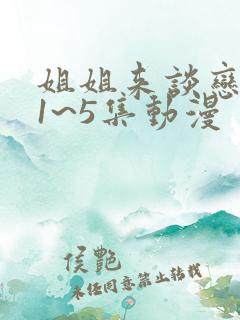 姐姐来談戀
1~5集動漫
侯艷
未经同意禁止转载